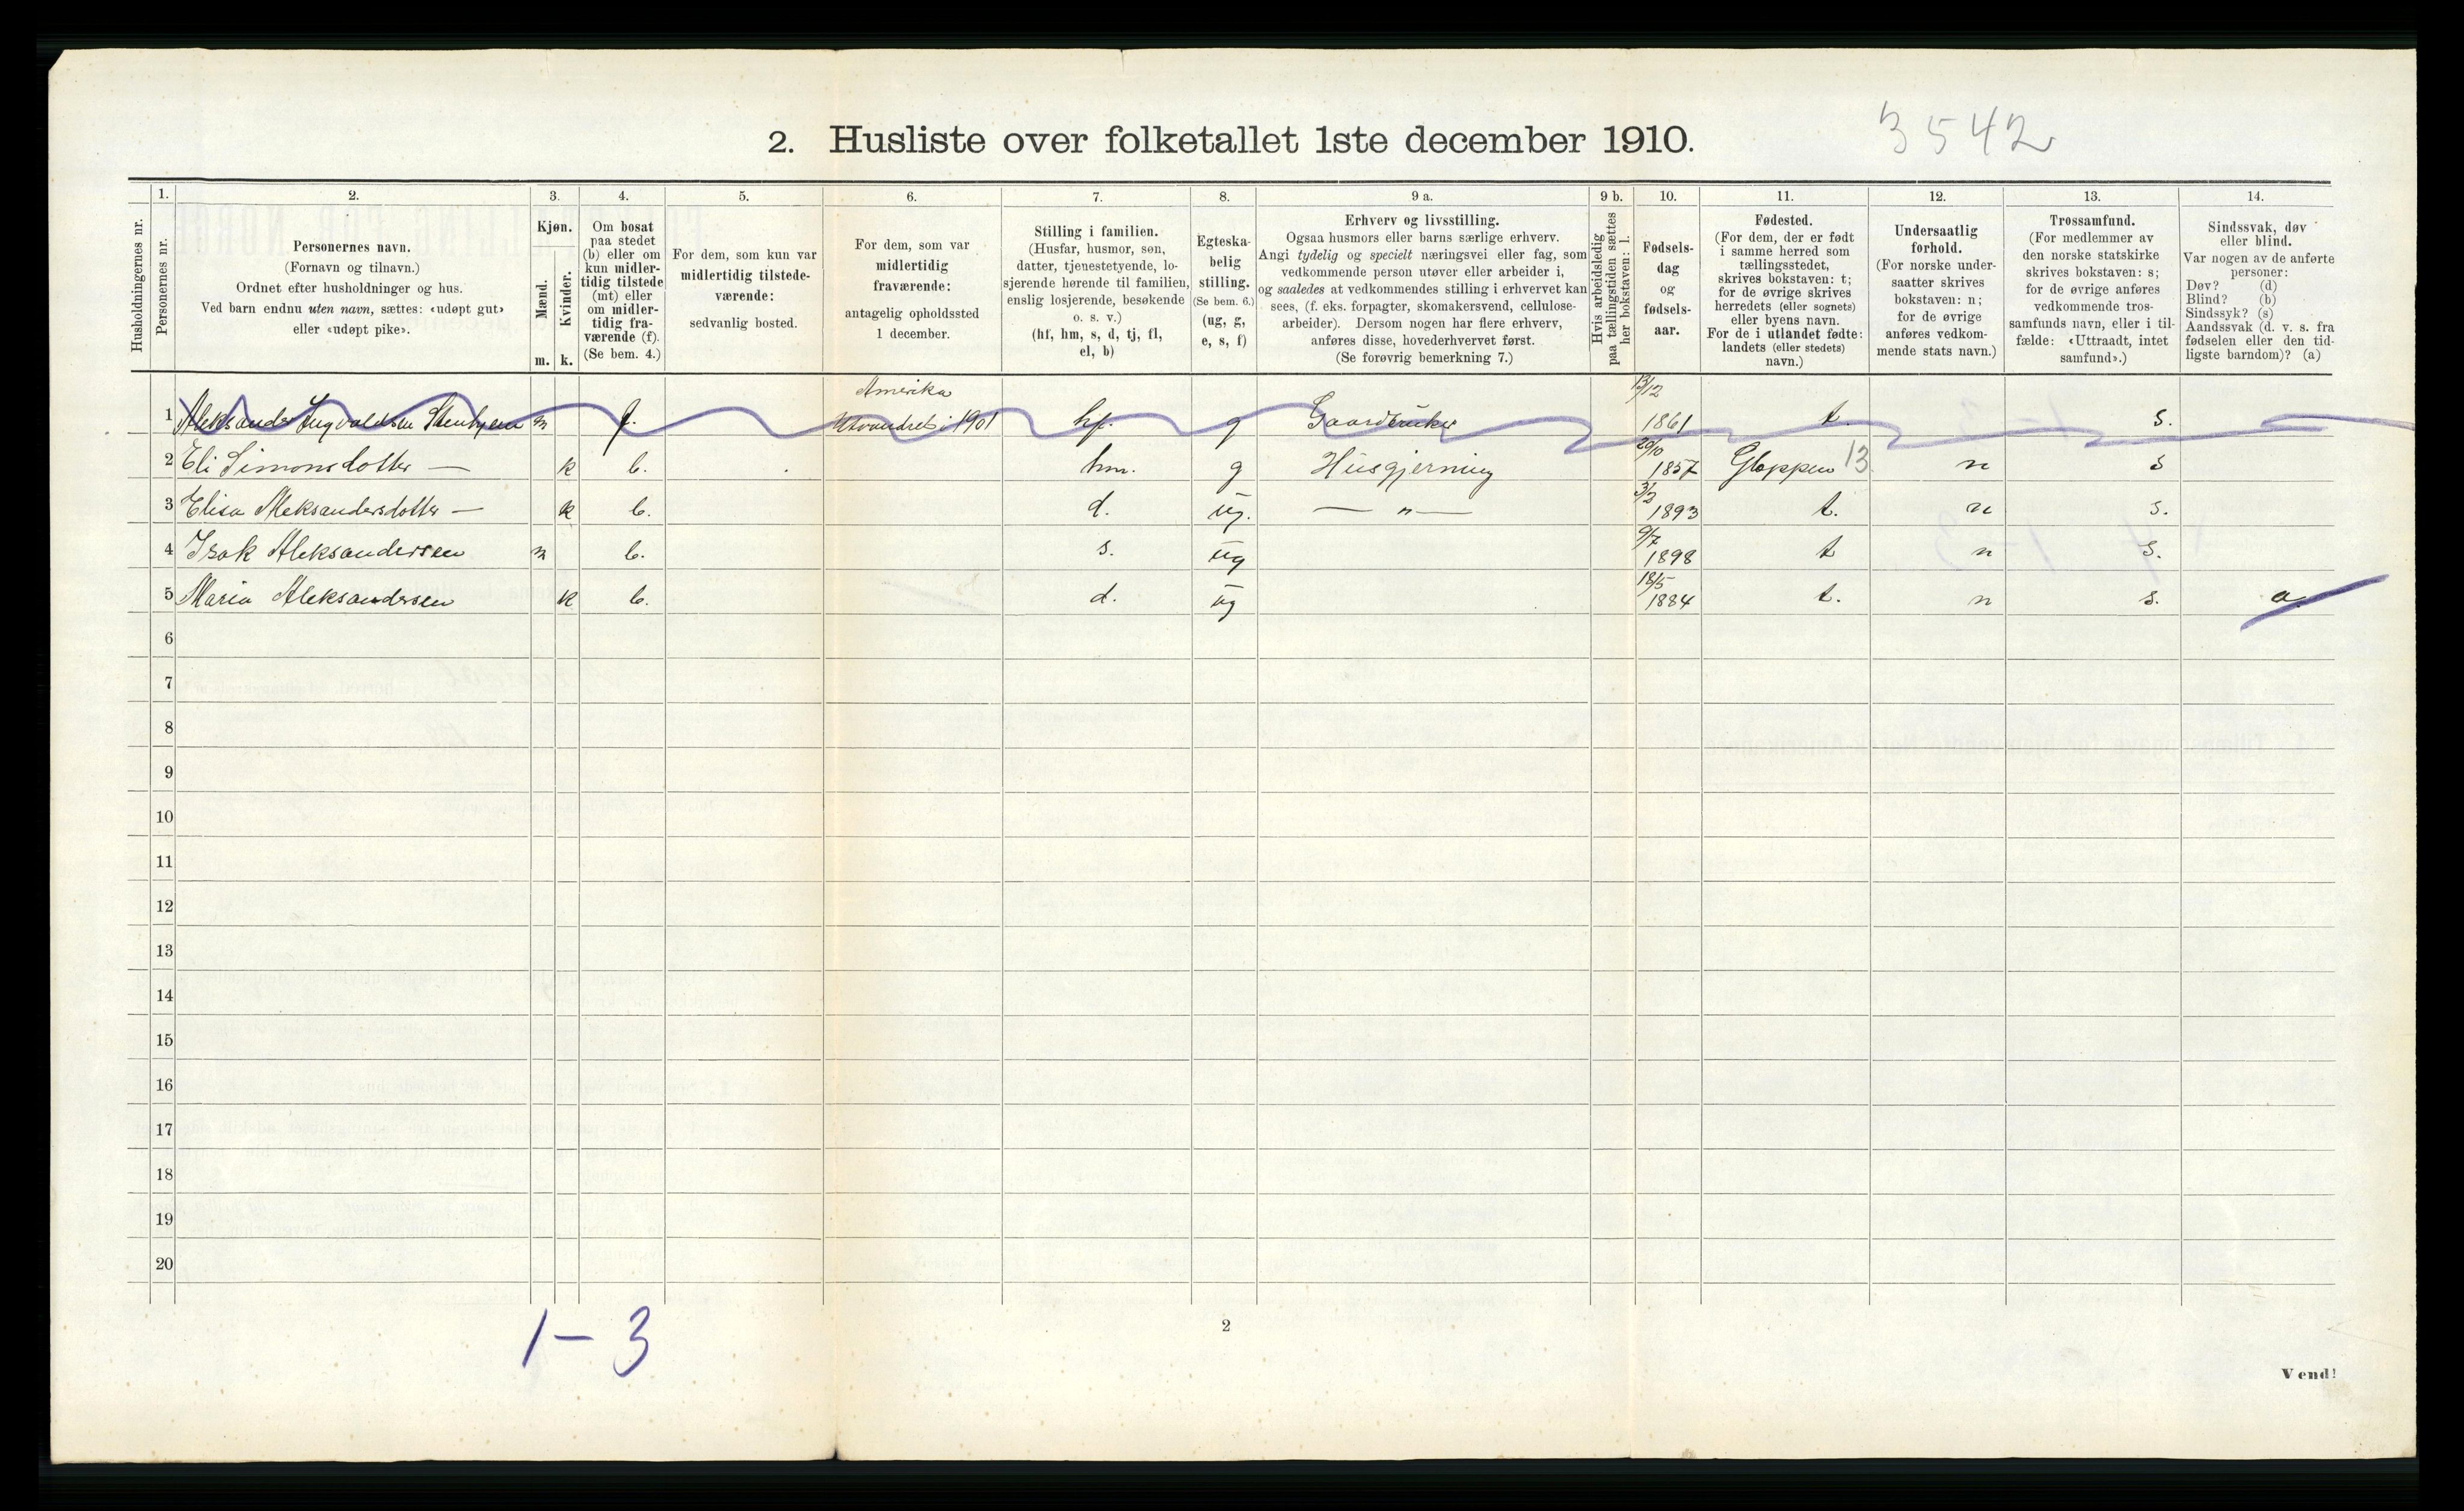 2. Husliste over folketallet 1ste december 1910.
3542
1. 2. 3. 4. 5. 6. 7. 8. 9 a. 9 b. 10. 11. 12. 13. 14.
Husholdningernes nr.
Personernes nr.
Personernes navn.
(Fornavn og tilnavn.)
Ordnet efter husholdninger og hus.
Ved barn endnu uten navn, sættes: «udøpt gut»
eller «udøpt pike».
Kjøn.
Mænd.
Kvinder.
m. k.
Om bosat
paa stedet
(b) eller om
kun midler-
tidig tilstede
(mt) eller
om midler-
tidig fra-
værende (f).
(Se bem. 4.)
For dem, som kun var
midlertidig tilstede-
værende:
sedvanlig bosted.
For dem, som var
midlertidig
fraværende:
antagelig opholdssted
1 december.
Stilling i familien.
(Husfar, husmor, søn,
datter, tjenestetyende, lo-
sjerende hørende til familien,
enslig losjerende, besøkende
o. s. v.)
(hf, hm, s, d, tj, fl,
el, b)
Egteska-
belig
stilling.
(Se bem. 6.)
(ug, g,
e, s, f)
Erhverv og livsstilling.
Ogsaa husmors eller barns særlige erhverv.
Angi tydelig og specielt næringsvei eller fag, som
vedkommende person utøver eller arbeider i,
og saaledes at vedkommendes stilling i erhvervet kan
sees, (f. eks. forpagter, skomakersvend, cellulose-
arbeider). Dersom nogen har flere erhverv,
anføres disse, hovederhvervet først.
(Se forøvrig bemerkning 7.)
Hvis arbeidsledig
paa tællingstiden sættes
her bokstaven: l.
Fødsels-
dag
og
fødsels-
aar.
Fødested.
(For dem, der er født
i samme herred som
tællingsstedet,
skrives bokstaven: t;
for de øvrige skrives
herredets (eller sognets)
eller byens navn.
For de i utlandet fødte:
landets (eller stedets)
navn.)
Undersaatlig
forhold.
(For norske under-
saatter skrives
bokstaven: n;
for de øvrige
anføres vedkom-
mende stats navn.)
Trossamfund.
(For medlemmer av
den norske statskirke
skrives bokstaven: s;
for de øvrige anføres
vedkommende tros-
samfunds navn, eller i til-
fælde: «Uttraadt, intet
samfund».)
Sindssvak, døv
eller blind.
Var nogen av de anførte
personer:
Døv? (d)
Blind? (b)
Sindssyk? (s)
Aandssvak (d. v. s. fra
fødselen eller den tid-
ligste barndom)? (a)
Amerika 13/12
1 Aleksander Ingvaldsen m f. Utvandret i 1901 hf. g Gaardbruker 1861 t. s.
20/10
2 Eli Simonsdotter — k b. hm. g Husgjerning 1857 Gloppen 13 n s
3/2
3 Elisa Aleksandersdotter — k b. d. ug. — " — 1893 t. n s.
9/7
4 Isak Aleksandersen m b. s. ug 1898 t n s.
18/5
5 Maria Aleksandersen k b. d. ug 1884 t. n s. a.
6
7
8
9
10
11
12
13
14
15
16
17
18
19
20
1 – 3
2
Vend!